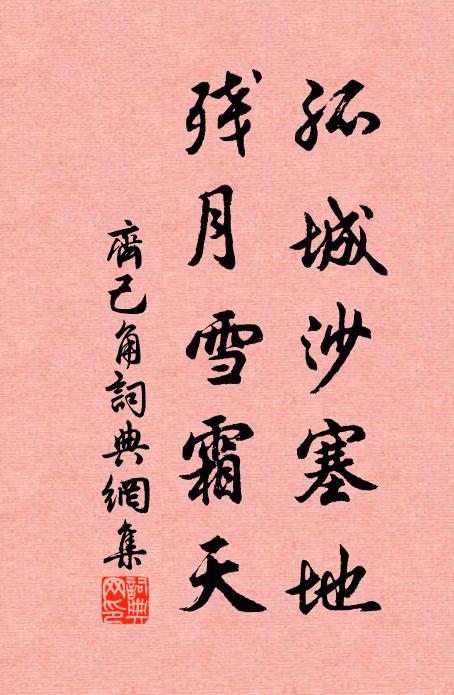 孤城沙塞地
残月雪霜天
齊己角詞典網集
詞典網印